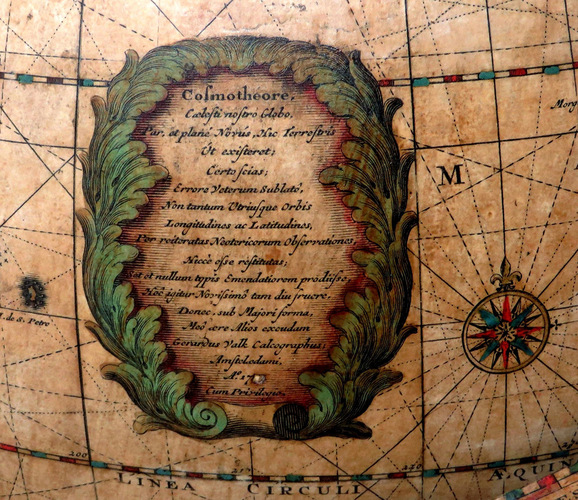 Cosmotheore,
Cœlesti nostro Globo,
Par, et planè Novus, Hic Terrestris
Ut existeret;
Certo scias;
Errore Veterum Sublatô,
Non tantum Utriusque Orbis
Longitudines ac Latitudines,
Per reiteratas Neotericorum Observationes,
Hicce esse restitutas;
Sed et nullum typis Emendatiorem prodiisse,
Hôc igitur Novissimô tam diu fruere,
Donec, sub Majori forma,
Meô ære Alios excudam
Gerardus Valk Calcographus;
Amstelodami.
Aº. 17
Cum Privilegio.
M
de S. Petro
200
LINEA CIRCULI